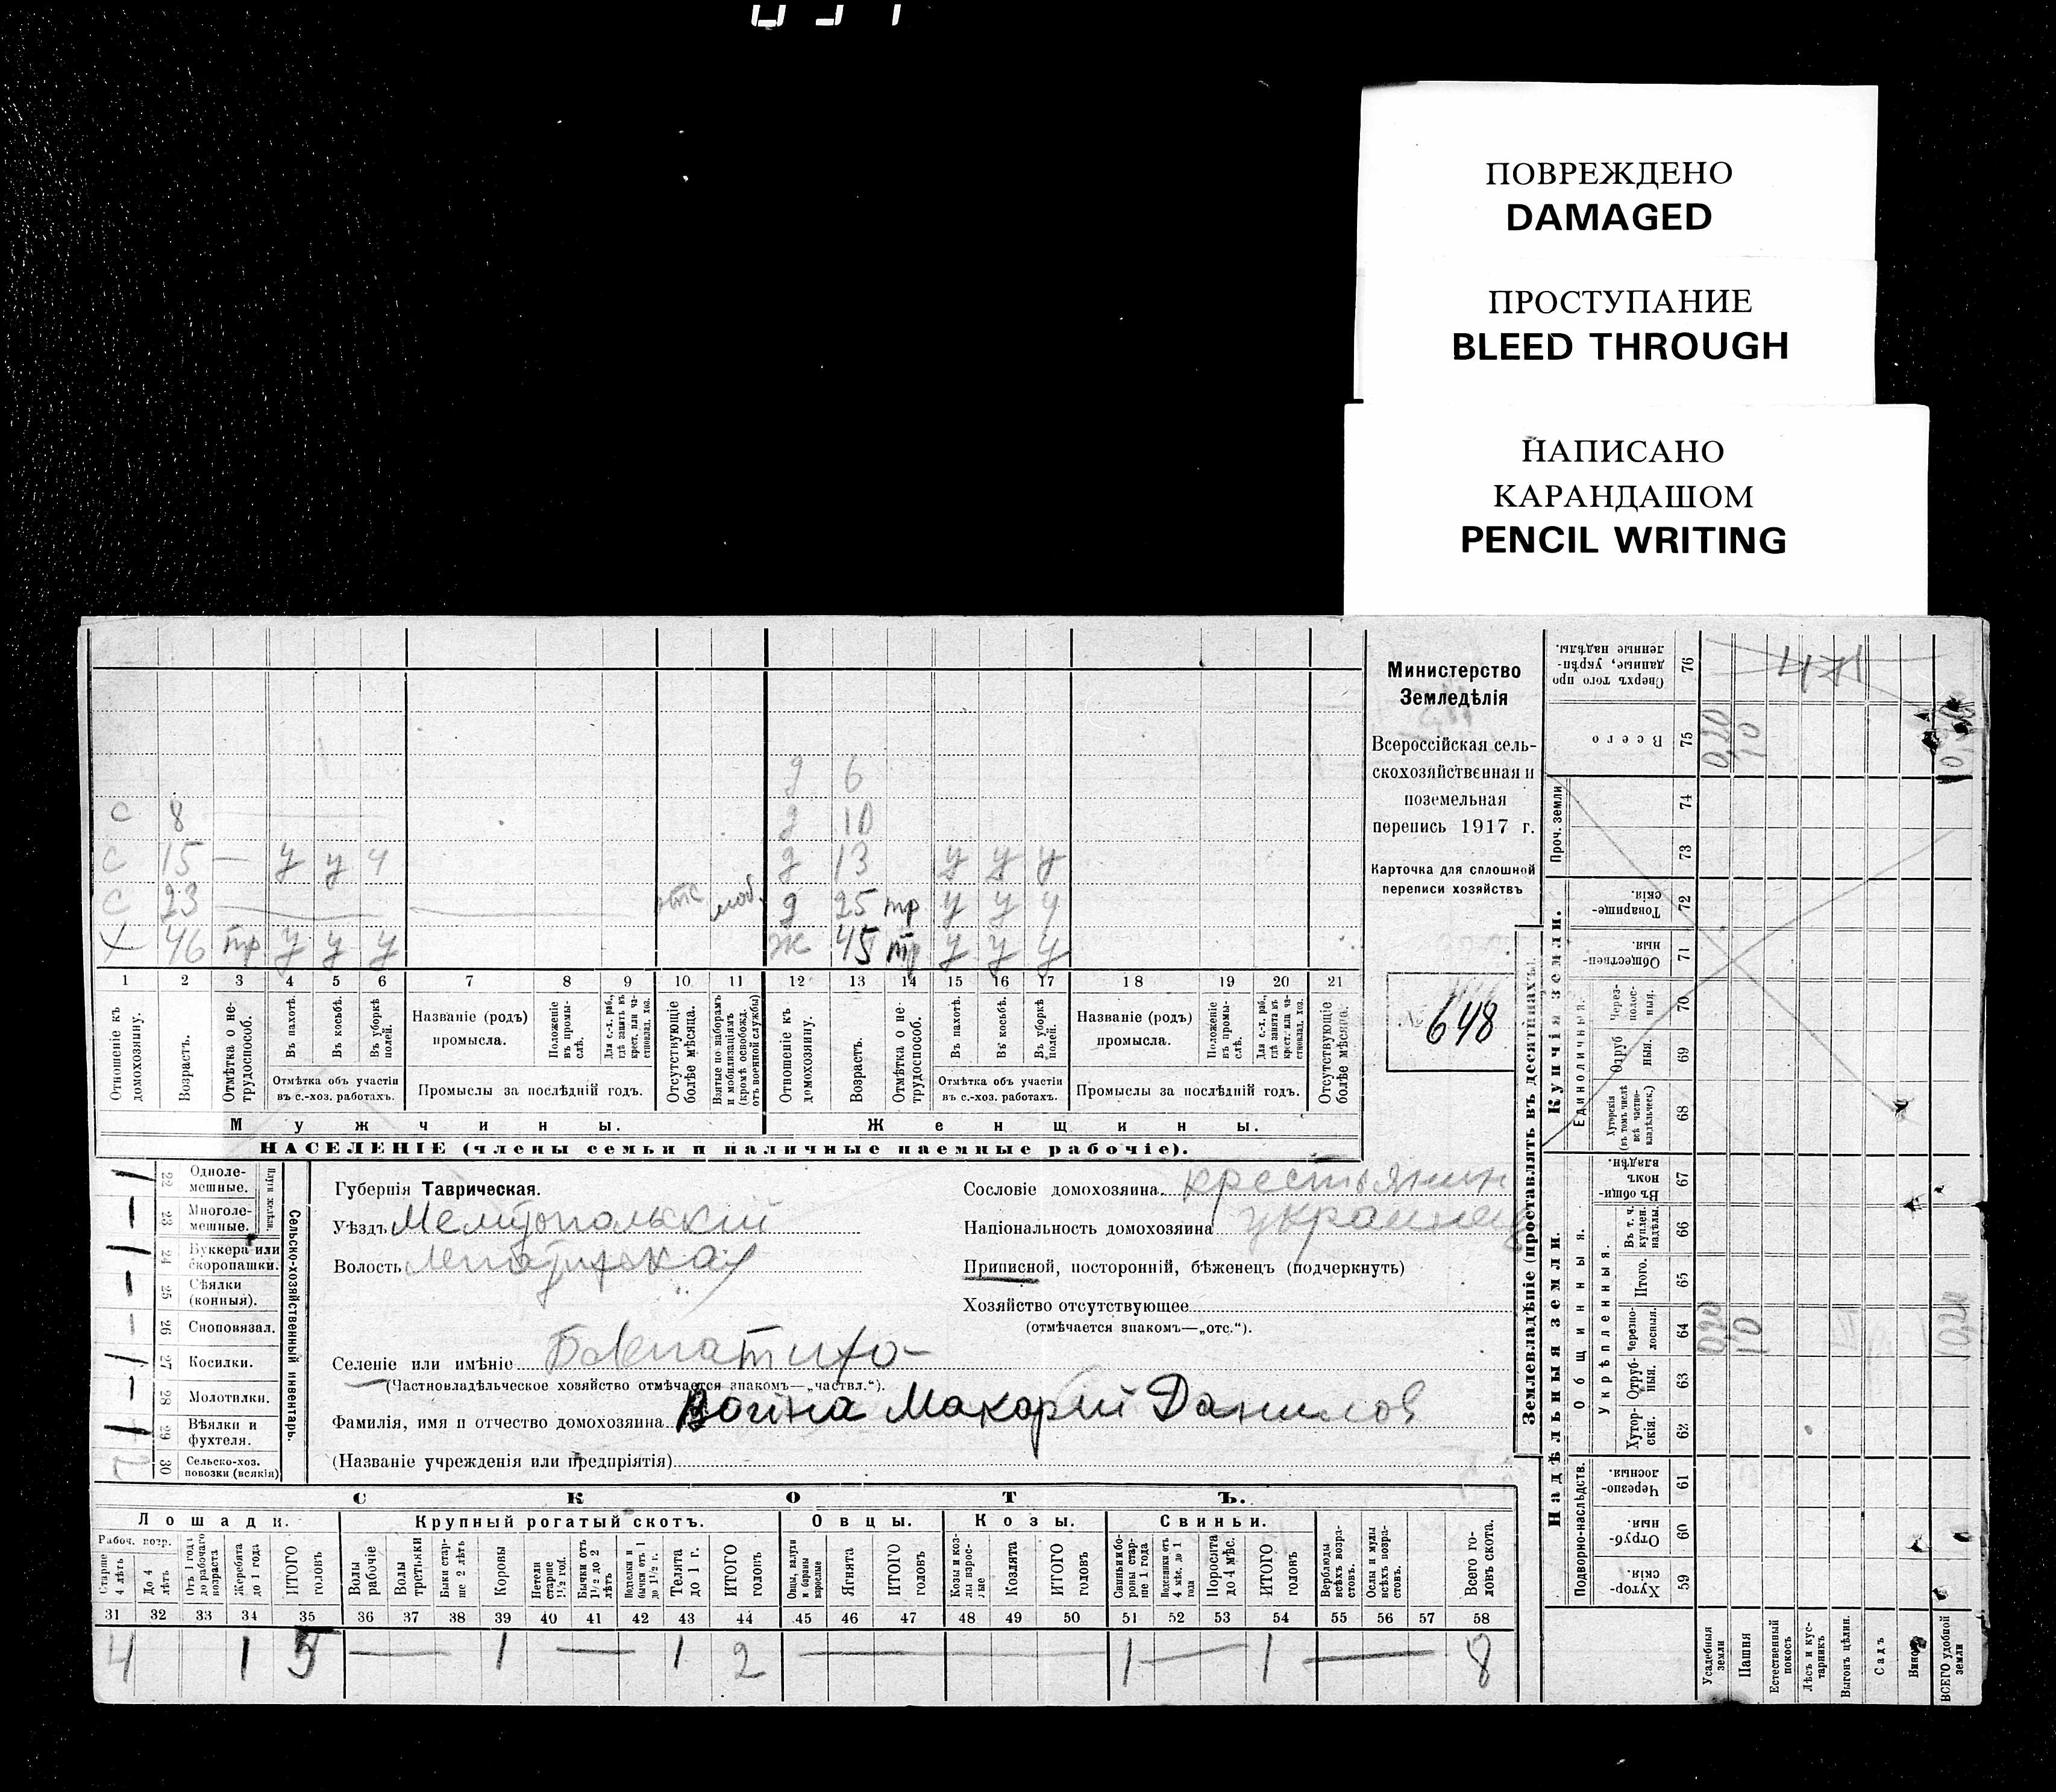 ПОВРЕЖДЕНО
DAMAGED
ПРОСТУПАНИЕ
BLEED THROUGH
НАПИСАНО
КАРАНДАШОМ
PENCIL WRITING
Министерство
Земледѣлія
Всероссійская сель-
скохозяйственная и
поземельная
перепись 1917 г.
Карточка для сплошной
переписи хозяйствъ
№ 648
д 6
с 8 д 10
с 15 — у у у д 13 у у у
с 23 отс моб. д 25 тр у у у
х 46 тр. у у у ж 45 тр у у у
1 2 3 4 5 6 7 8 9 10 11 12 13 14 15 16 17 18 19 20 21
Отношеніе къ домохозяину.
Возрастъ.
Отмѣтка о не-трудоспособ.
Въ пахотѣ.
Въ косьбѣ.
Въ уборкѣ полей.
Отмѣтка объ участіи
въ с.-хоз. работахъ.
Названіе (родъ)
промысла.
Положеніе въ промы-слѣ.
Для с.-х. раб., гдѣ занятъ въ крест. или ча-ствовлад. хоз.
Промыслы за послѣдній годъ.
Отсутствующіе болѣе мѣсяца.
Взятые по наборамъ и мобилизаціямъ (кромѣ освобожд. отъ военной службы)
Отношеніе къ домохозяину.
Возрастъ.
Отмѣтка о не-трудоспособ.
Въ пахотѣ.
Въ косьбѣ.
Въ уборкѣ полей.
Отмѣтка объ участіи
въ с.-хоз. работахъ.
Названіе (родъ)
промысла.
Положеніе въ промы-слѣ.
Для с.-х. раб., гдѣ занята въ крест. или ча-ствовлад. хоз.
Промыслы за послѣдній годъ.
Отсутствующіе болѣе мѣсяца.
Мужчины. Женщины.
НАСЕЛЕНІЕ (члены семьи и наличные наемные рабочіе).
Сельско-хозяйственный инвентарь.
1 22 Одноле-мешные.
— 23 Многоле-мешные.
1 24 Буккера или скоропашки.
— 25 Сѣялки (конныя).
— 26 Сноповязал.
1 27 Косилки.
— 28 Молотилки.
1 29 Вѣялки и фухтеля.
2 30 Сельско-хоз. повозки (всякія)
Губернія Таврическая.
Уѣздъ Мелитопольскій
Волость
Селеніе или имѣніе
(Частновладѣльческое хозяйство отмѣчается знакомъ—„частвл.“).
Фамилія, имя и отчество домохозяина Война Макарій Данилов
(Названіе учрежденія или предпріятія)
Сословіе домохозяина крестьянин
Національность домохозяина украинец
Приписной, посторонній, бѣженецъ (подчеркнуть)
Хозяйство отсутствующее
(отмѣчается знакомъ—„отс.“).
СКОТЪ.
Лошади. Крупный рогатый скотъ. Овцы. Козы. Свиньи.
Рабоч. возр.
Старше 4 лѣтъ
До 4 лѣтъ
Отъ 1 года до рабочаго возраста
Жеребята до 1 года
ИТОГО головъ
Волы рабочіе
Волы третьяки
Быки стар-ше 2 лѣтъ
Коровы
Нетели старше 1½ год.
Бычки отъ 1½ до 2 лѣтъ
Телята до 1 г.
ИТОГО головъ
Овцы, валухи и бараны взрослые
Ягнята
ИТОГО головъ
Козы и коз-лы взрос-лые
Козлята
ИТОГО головъ
Свиньи и бо-ровы стар-ше 1 года
Поросята до 4 мѣс.
ИТОГО головъ
Верблюды всѣхъ возра-стовъ.
Ослы и мулы всѣхъ возра-стовъ.
Всего го-ловъ скота.
31 32 33 34 35 36 37 38 39 40 41 42 43 44 45 46 47 48 49 50 51 52 53 54 55 56 57 58
4 1 5 — 1 — 1 2 — 1 — 1 — 8
Землевладѣніе (проставлять въ десятинахъ).
Надѣльныя земли. Купчія земли.
Подворно-наслѣдств.
Общинныя.
Укрѣпленныя.
Единоличныя.
Проч. земли
Хутор-скія. 59
Отруб-ныя. 60
Черезпо-лосныя. 61
Хутор-скія. 62
Отруб-ныя. 63
Черезпо-лосныя. 64
Итого. 65
Въ т. ч. куплен. надѣлы. 66
Въ общи-номъ владѣн. 67
Хуторскія (въ томъ числѣ всѣ частно-владѣльческ.) 68
Отруб ныя. 69
Через-полос-ныя. 70
Обществен-ныя. 71
Товарище-скія. 72
73
74
Всего 75
Сверхъ того про-данные, укрѣп-ленные надѣлы. 76
Усадебныя земли 0,20 0,20
Пашня 10 10
Естественный покосъ
Лѣсъ и кус-тарникъ
Выгонъ цѣлин.
Садъ
ВСЕГО удобной земли 10,20